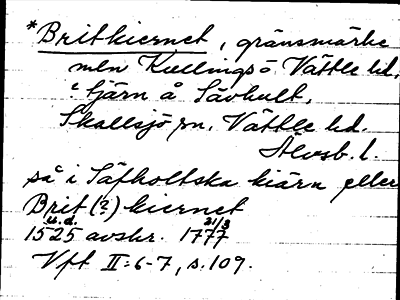 *Britkiernet, gränsmärke
mln Kullingsö Vättle hd,
? tjärn å Sävhult,
Skallsjö sn, Vättle hd.
Älvsb. l.
så i Säfholtska kiärn eller
Brit(?)kiernet
u.d.
1525 avskr. 21/3 1777
Vft II:6-7, s.109.